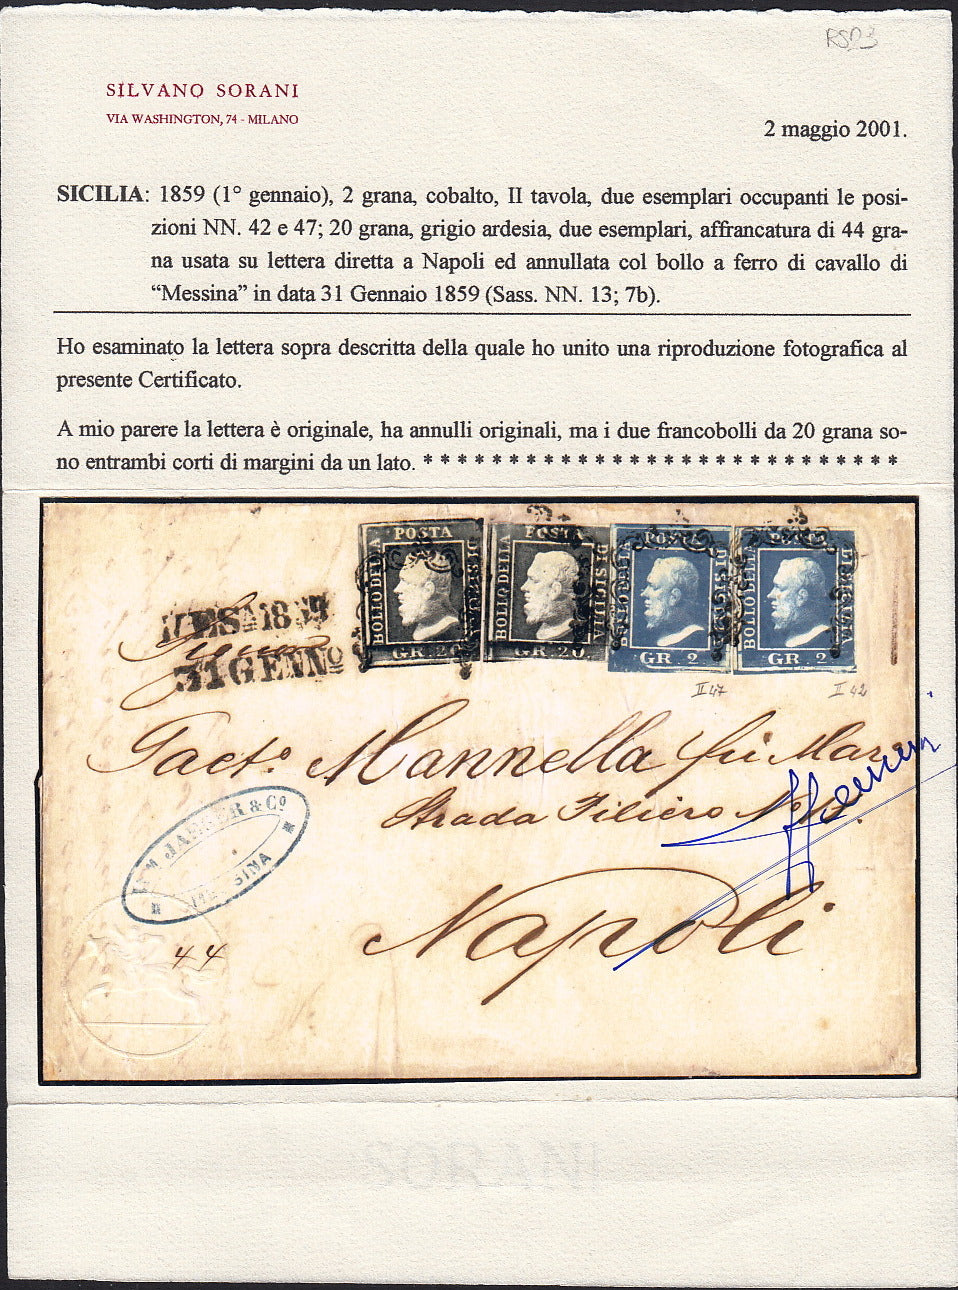 RSD3
SILVANO SORANI
VIA WASHINGTON, 74 - MILANO
2 maggio 2001.
SICILIA: 1859 (1° gennaio), 2 grana, cobalto, II tavola, due esemplari occupanti le posi-
zioni NN. 42 e 47; 20 grana, grigio ardesia, due esemplari, affrancatura di 44 gra-
na usata su lettera diretta a Napoli ed annullata col bollo a ferro di cavallo di
“Messina” in data 31 Gennaio 1859 (Sass. NN. 13; 7b).
Ho esaminato la lettera sopra descritta della quale ho unito una riproduzione fotografica al
presente Certificato.
A mio parere la lettera è originale, ha annulli originali, ma i due francobolli da 20 grana so-
no entrambi corti di margini da un lato. * * * * * * * * * * * * * * * * * * * * * * * * * * * *
POSTA BOLLO DELLA DI SICILIA GR. 20
POSTA BOLLO DELLA DI SICILIA GR. 20
POSTA BOLLO DELLA DI SICILIA GR. 2
POSTA BOLLO DELLA DI SICILIA GR. 2
MESSA 1859
31 GENNO
II 47
II 42
Gaet.o Mannella fu Mar
Strada Filiero No
JAEGER & Co
MESSINA
Napoli
44
SORANI